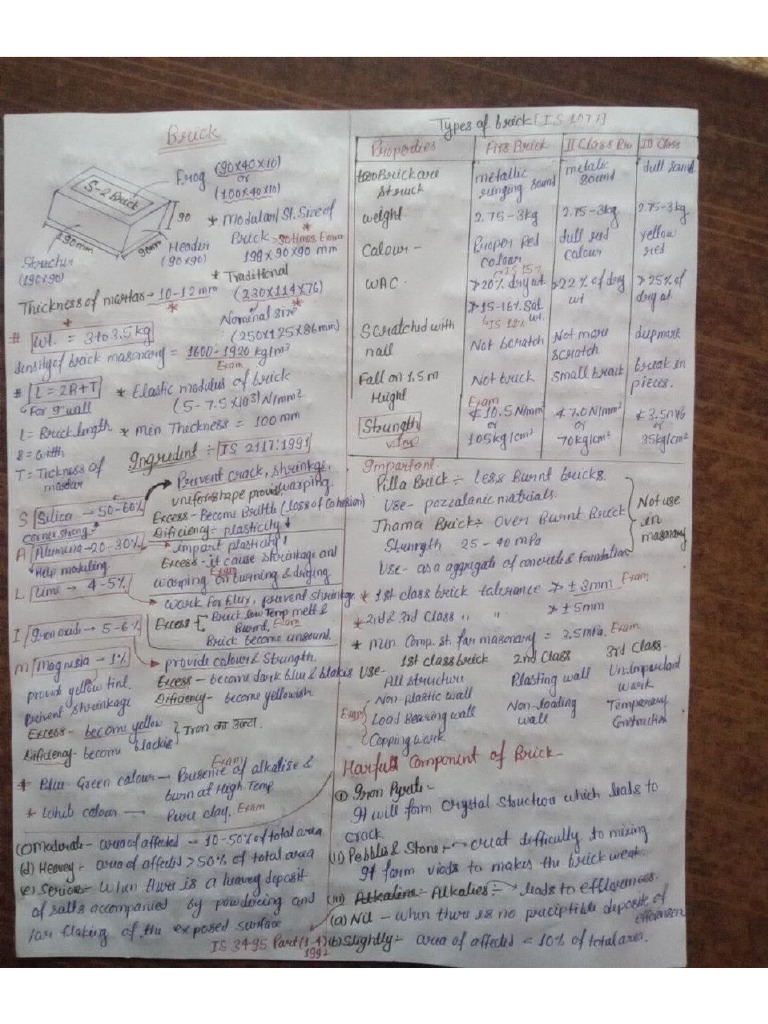 Brick
Frog (90x40x10)
or
(100x40x10)
S-2 Brick
90
190mm
90mm
Header
(90x90)
(190x90)
* Modular/St. Size of
Brick - Exam
190x90x90 mm
* Traditional
(230x114x76)
Thickness of mortar → 10-12mm
Nominal size
(250x125x86mm)
# Wt. = 3 to 3.5 kg
density of brick masonary = 1600-1920 kg/m³
Exam
# L = 2B+T
For 9" wall
* Elastic modulus of brick
(5-7.5x10³) N/mm²
L = Brick length
* Min Thickness = 100mm
B = width
T = Tickness of
mortar
Ingredient ÷ IS 2117:1991
S Silica → 50-60%
corner strong
→ Prevent crack, shrinkage,
uniform shape provid, warping.
Excess - Become Brittle (loss of cohesion)
Dificiency - plasticity ↓
A Alumina - 20-30%
Help moulding
→ impart plasticity
Excess - it cause shrinkage and
warping on burning & drying
L Lime - 4-5%
→ work for flux, prevent shrinkage.
Excess - Brick low Temp melt &
Exam
Brick become unsound.
I Iron oxide → 5-6%
→ provide colour & Strength.
Excess - became dark blue & blakis
Dificiency - become yellowish
M Magnesia → 1%
provid yellow tint
Prevent shrinkage
Excess - become yellow
Dificiency - become blackis
Iron का उल्टा.
* Blue Green colour → Presence of alkalise &
burn at High Temp
Exam
* White colour → Pure clay. Exam
(c) Moderate - area of affected - 10-50% of total area
(d) Heavey - area of affected > 50% of total area
(e) Serious - When there is a heavey deposit
of salts accompanied by powdering and
/or flaking of the exposed surface
IS 3495 Part (1-4)
1992
Types of brick [IS 1077]
Properties Firs Brick II Class Bri III Class
two Brick are
struck
metallic
ringing sound
metalic
sound
dull sound
weight 2.75-3kg 2.75-3kg 2.75-3kg
Calour - Proper Red
colour
dull red
colour
yellow
red
WAC ≯20% dry wt. ≯22% of dry
wt
≯25% of
dry wt.
IS 15%
≯15-16% Sat.
wt.
IS 12%
Scratched with
nail
Not Scratch Not more
scratch
dup mark
Fall on 1.5m
Hieght
Not brick Small brait break in
pieces.
Exam
Strength
≮10.5N/mm²
or
105kg/cm²
≮7.0N/mm²
or
70kg/cm²
≮3.5
or
35kg/cm²
Important
Pilla Brick ÷ Less Burnt bricks.
Use - pozzalanic matrials.
Jhama Brick ÷ Over Burnt Brick
Strength 25-40 MPa
Use - as a aggregate of concrete & foundation
Not use
in
masonary
* 1st class brick tolerance ≯ ±3mm Exam
* 2nd & 3rd Class " " ≯ ±5mm
* Min Comp. st. far masonary = 3.5mPa. Exam
Use - 1st class brick 2nd Class 3rd Class
All structure Plasting wall Un-important
work
Non-plastic wall Non-loading
wall
Temporary
Contruction
Exam
Load Bearing wall
Copping work
Harfull Component of Brick-
(i) Iron Pyrite -
It will form crystal Struction which leads to
crack.
(ii) Pebble & Stone :- creat difficulty to mixing
It form viods to makes the brick weak.
(iii) Alkaline :- Alkalies :- leads to effloreences.
(a) Nil - when there is no preciptible deposite of
(b) Slightly - area of affected = 10% of total area.